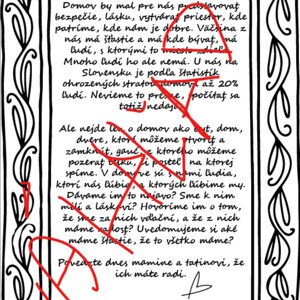 Domov by mal pre nás predstavovať
bezpečie, lásku, vytvárať priestor, kde
patríme, kde nám je dobre. Väčšina z
nás má šťastie a má kde bývať, má
ľudí, s ktorými to miesto zdieľa.
Mnoho ľudí ho ale nemá. U nás na
Slovensku je podľa štatistík
ohrozených stratou domova až 20%
ľudí. Nevieme to presne, počítať sa
totiž nedajú.
Ale nejde len o domov ako byt, dom,
dvere, ktoré môžeme otvoriť a
zamknúť, gauč z ktorého môžeme
pozerať telku, či posteľ na ktorej
spíme. V domove sú s nami ľudia,
ktorí nás ľúbia a ktorých ľúbime my.
Dávame im to najavo? Sme k nim
milí a láskaví? Hovoríme im o tom,
že sme za nich vďační, a že z nich
máme radosť? Uvedomujeme si aké
máme šťastie, že to všetko máme?
Povedzte dnes mamine a tatinovi, že
ich máte radi.